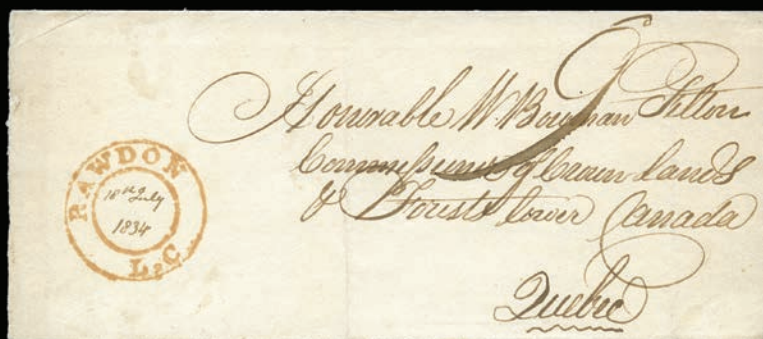 9
Honorable W. Bowman Felton
Commissioner of Crown lands
& Forests lower Canada
Quebec
RAWDON
18th July
1834
L.C